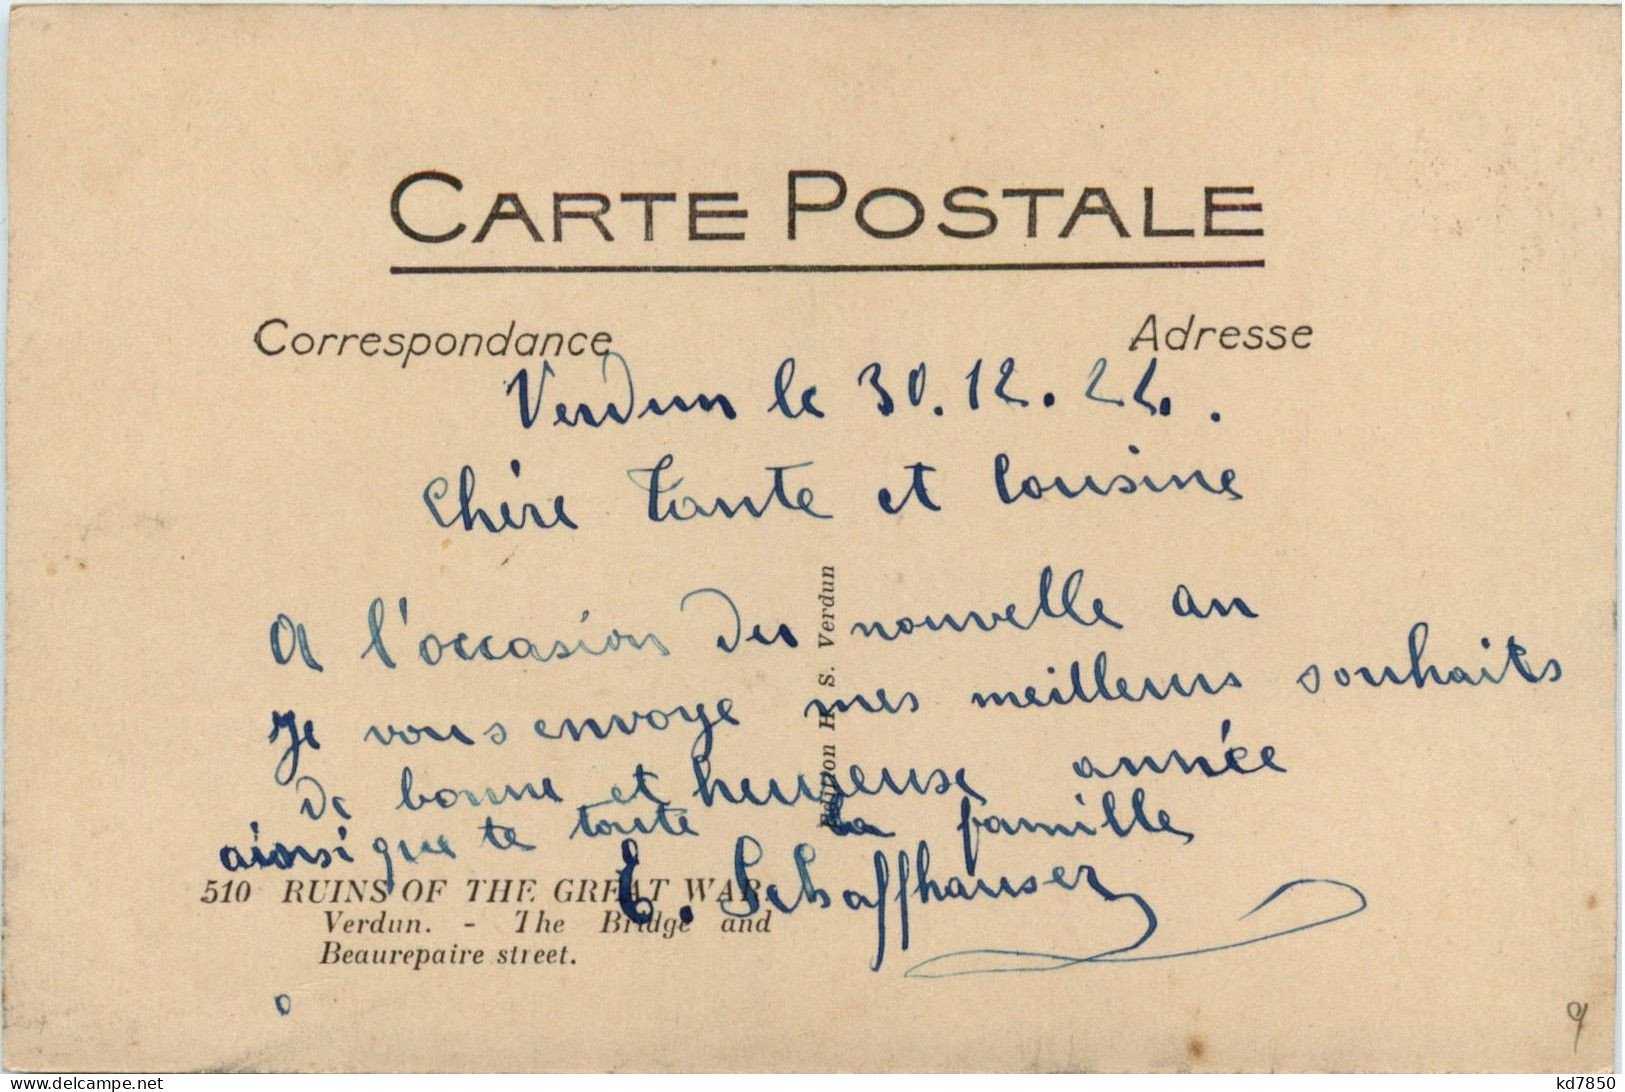 CARTE POSTALE
Correspondance
Adresse
Verdun le 30.12.22.
Chère Tante et Cousine
A l'occasion du nouvelle an
Je vous envoye mes meilleurs souhaits
de bonne et heureuse année
ainsi que te toute la famille
E. Schaffhauser
Edition H. S. Verdun
510 RUINS OF THE GREAT WAR.
Verdun. - The Bridge and
Beaurepaire street.
9
www.delcampe.net
kd7850